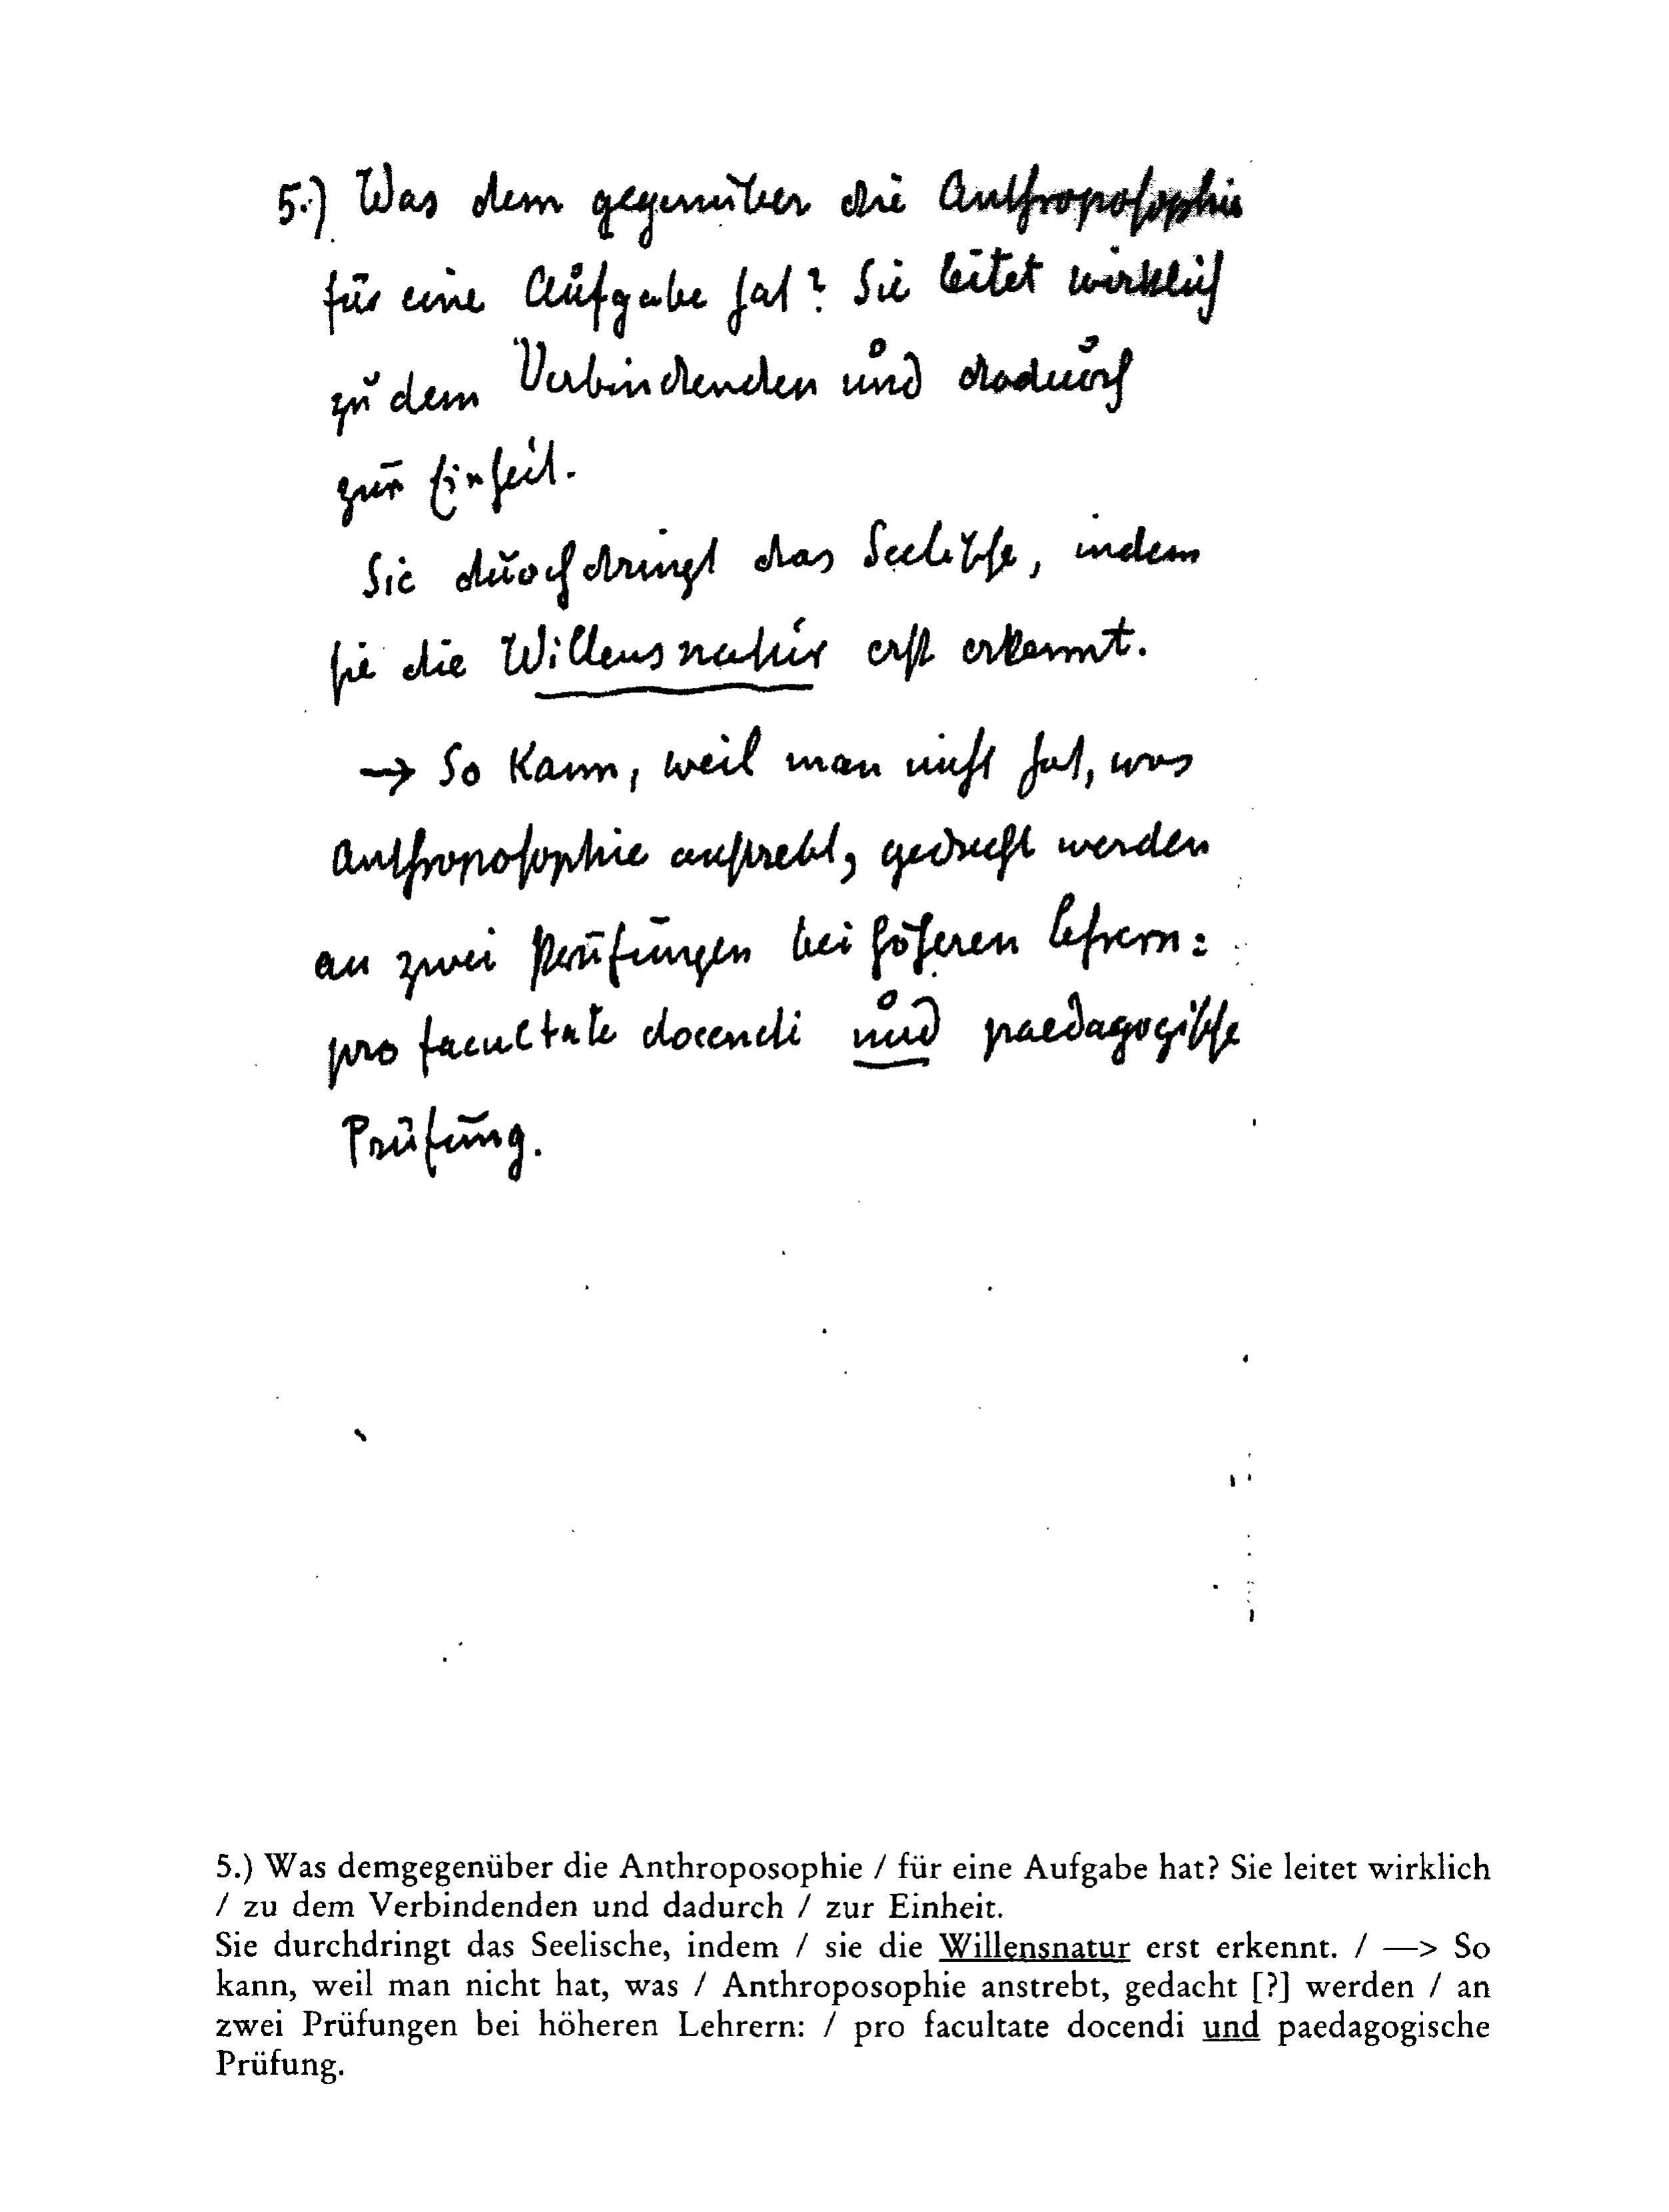 5.) Was dem gegenüber die Anthroposophie
für eine Aufgabe hat? Sie leitet wirklich
zu dem Verbindenden und dadurch
zur Einheit.
Sie durchdringt das Seelische, indem
sie die Willensnatur erst erkennt.
→ So kann, weil man nicht hat, was
Anthroposophie anstrebt, gedacht werden
an zwei Prüfungen bei höheren Lehrern:
pro facultate docendi und paedagogische
Prüfung.
5.) Was demgegenüber die Anthroposophie / für eine Aufgabe hat? Sie leitet wirklich
/ zu dem Verbindenden und dadurch / zur Einheit.
Sie durchdringt das Seelische, indem / sie die Willensnatur erst erkennt. / —> So
kann, weil man nicht hat, was / Anthroposophie anstrebt, gedacht [?] werden / an
zwei Prüfungen bei höheren Lehrern: / pro facultate docendi und paedagogische
Prüfung.